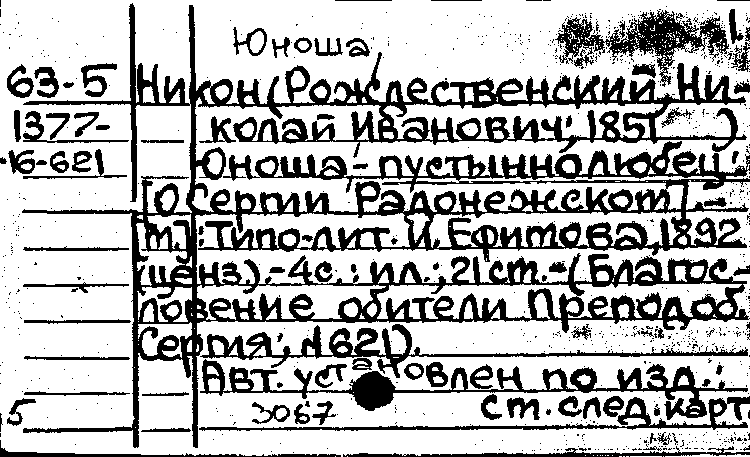 1.
Юноша
63-5 Никон (Рождественский, Ни-
1377- колай Иванович; 1851 )
16-621 Юноша-пустыннолюбец:
[О Сергии Радонежском].-
[м]: Типо-лит. И. Ефимова, 1892
(ценз).-4с.: ил.; 21см.-(Благос-
ловение обители Преподоб.
Сергия; №621).
Авт. установлен по изд.:
5 3067 см. след. карт